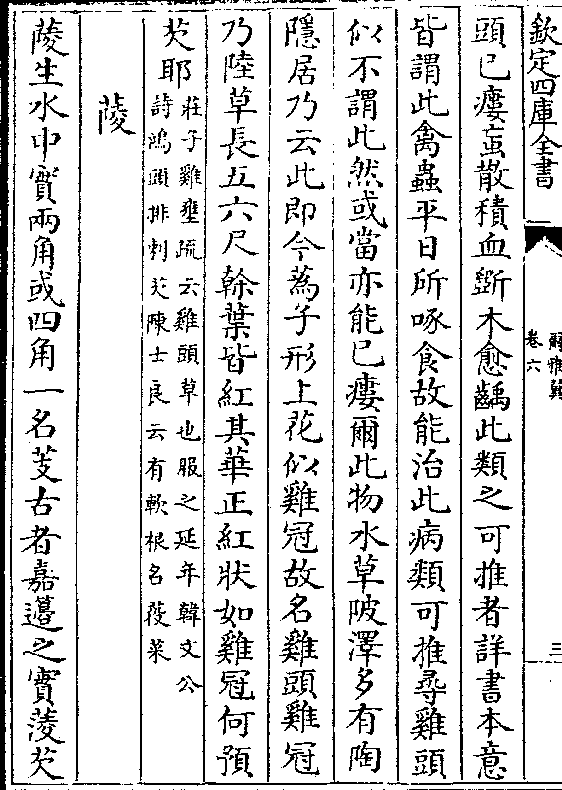 欽定四庫全書
爾雅翼
卷六
三
頭已瘻蝱散積血斲木愈齲此類之可推者詳書本意
皆謂此禽蟲平日所啄食故能治此病類可推尋雞頭
似不謂此然或當亦能已瘻爾此物水草陂澤多有陶
隱居乃云此即今蒍子形上花似雞冠故名雞頭雞冠
乃陸草長五六尺幹葉皆紅其華正紅狀如雞冠何預
芡耶
莊子雞壅疏云雞頭草也服之延年韓文公
詩鴻頭排刺芡陳士良云有軟根名䓈菜
蔆
蔆生水中實兩角或四角一名芰古者嘉籩之實蔆芡